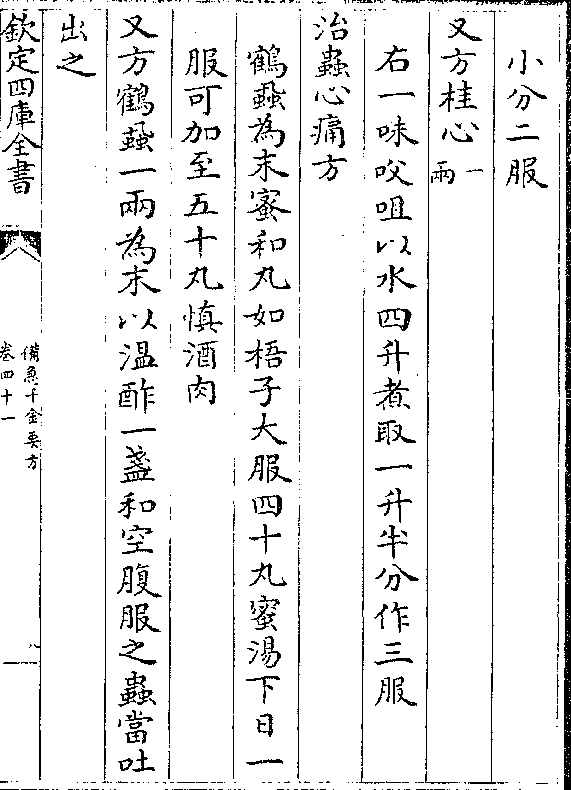 小分二服
又方桂心一兩
右一味㕮咀以水四升煮取一升半分作三服
治蟲心痛方
鶴蝨為末蜜和丸如梧子大服四十丸蜜湯下日一
服可加至五十丸慎酒肉
又方鶴蝨一兩為末以温酢一盞和空腹服之蟲當吐
出之
欽定四庫全書
備急千金要方
卷四十一
八